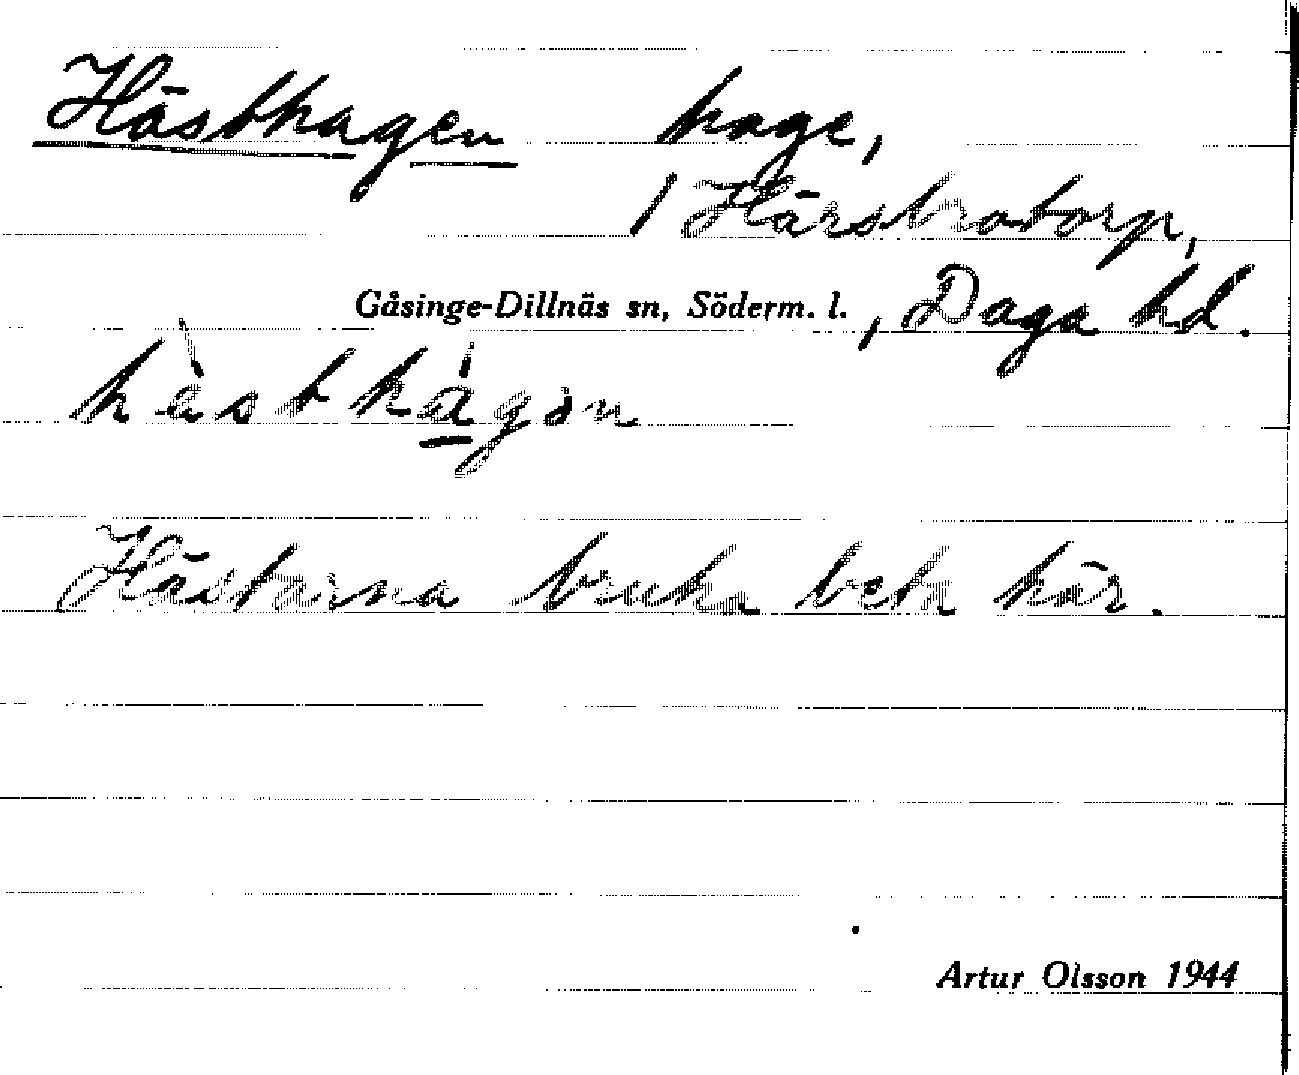 Hästhagen hage,
/ Härstratorp,
Gåsinge-Dillnäs sn, Söderm. l. , Daga hd.
hästhágən
Hästarna bruka beta här.
Artur Olsson 1944